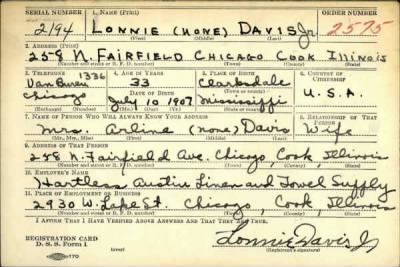 SERIAL NUMBER 1. NAME (Print) ORDER NUMBER
2194 LONNIE (NONE) DAVIS Jr 2575
(First) (Middle) (Last)
2. ADDRESS (Print)
258 N. FAIRFIELD CHICAGO COOK ILLINOIS
(Number and street or R. F. D. number) (Town) (County) (State)
3. TELEPHONE 4. AGE IN YEARS 5. PLACE OF BIRTH 6. COUNTRY OF CITIZENSHIP
Van Buren 1336 33 Clarksdale
Chicago DATE OF BIRTH (Town or county) U.S.A.
July 10 1907 Mississippi
(Exchange) (Number) (Mo.) (Day) (Yr.) (State or country)
7. NAME OF PERSON WHO WILL ALWAYS KNOW YOUR ADDRESS 8. RELATIONSHIP OF THAT PERSON
Mrs. Arline (none) Davis Wife
(Mr., Mrs., Miss) (First) (Middle) (Last)
9. ADDRESS OF THAT PERSON
258 N. Fairfield Ave. Chicago, Cook, Illinois
(Number and street or R. F. D. number) (Town) (County) (State)
10. EMPLOYER'S NAME
Linen and Towel Supply
11. PLACE OF EMPLOYMENT OR BUSINESS
2930 W. Lake St. Chicago, Cook, Illinois
(Number and street or R. F. D. number) (Town) (County) (State)
I AFFIRM THAT I HAVE VERIFIED ABOVE ANSWERS AND THAT THEY ARE TRUE.
REGISTRATION CARD
D. S. S. Form 1 (over) Lonnie Davis Jr
(Registrant's signature)